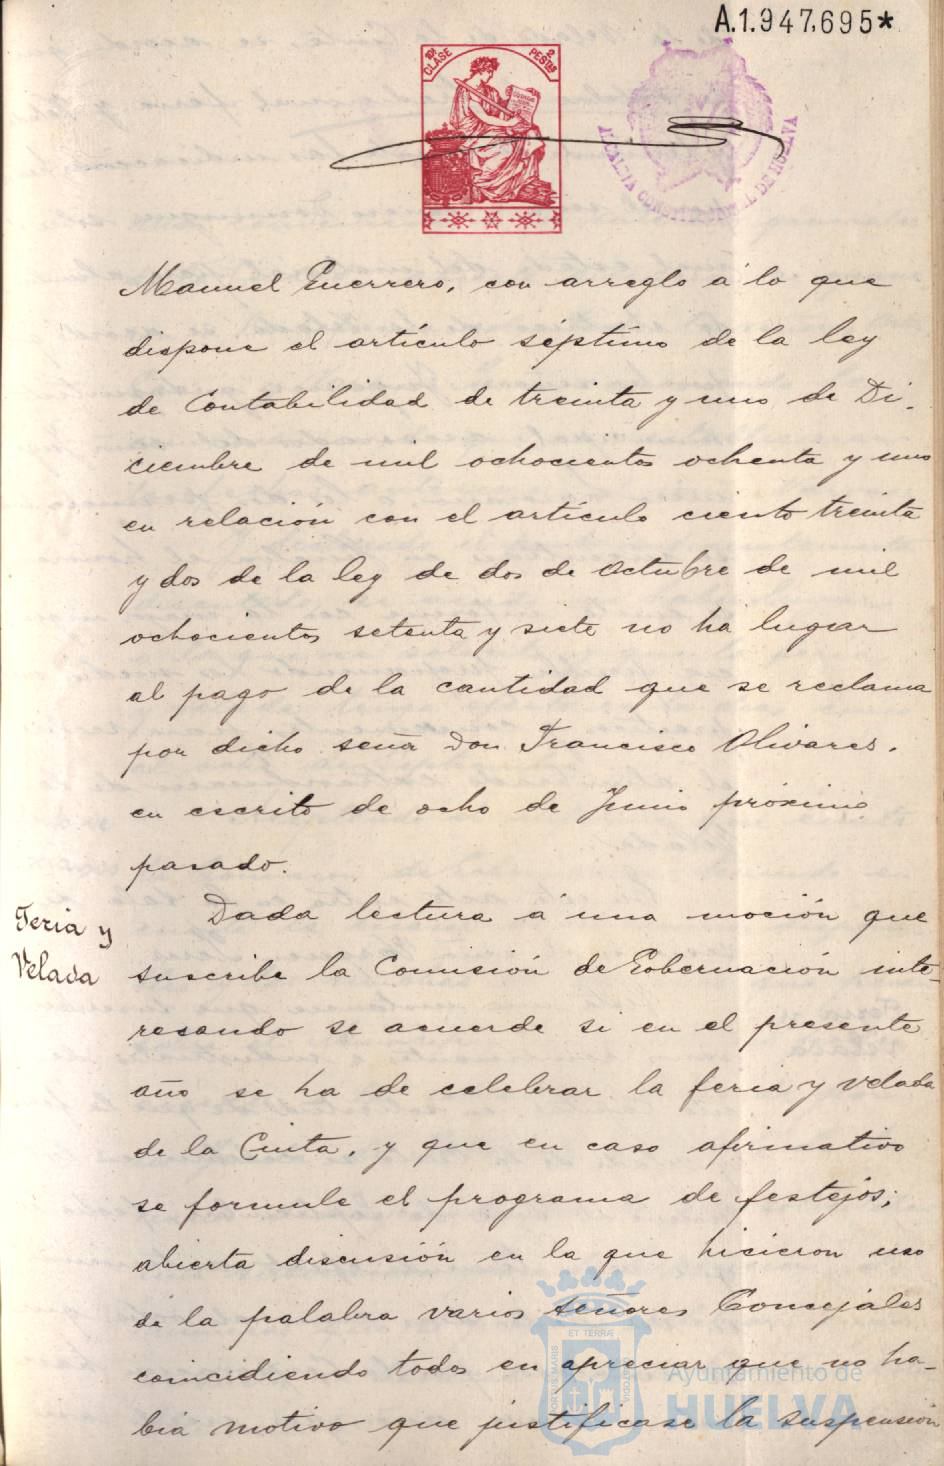 A.1.947,695*
10ª CLASE
2 PESETAS
ALCALDIA CONSTITUCIONAL DE HUELVA
Manuel Guerrero, con arreglo á lo que
dispone el artículo séptimo de la ley
de Contabilidad de treinta y uno de Di-
ciembre de mil ochocientos ochenta y uno
en relación con el artículo ciento treinta
y dos de la ley de dos de Octubre de mil
ochocientos setenta y siete no ha lugar
al pago de la cantidad que se reclama
por dicho señor Don Francisco Olivares,
en escrito de ocho de Junio próximo
pasado.
Feria y
Velada
Dada lectura á una moción que
suscribe la Comisión de Gobernación inte-
resando se acuerde si en el presente
año se ha de celebrar la feria y velada
de la Cinta, y que en caso afirmativo
se formule el programa de festejos;
abierta discusión en la que hicieron uso
de la palabra varios señores Concejales
coincidiendo todos en apreciar que no ha-
bia motivo que justificase la suspensión
Ayuntamiento de
HUELVA